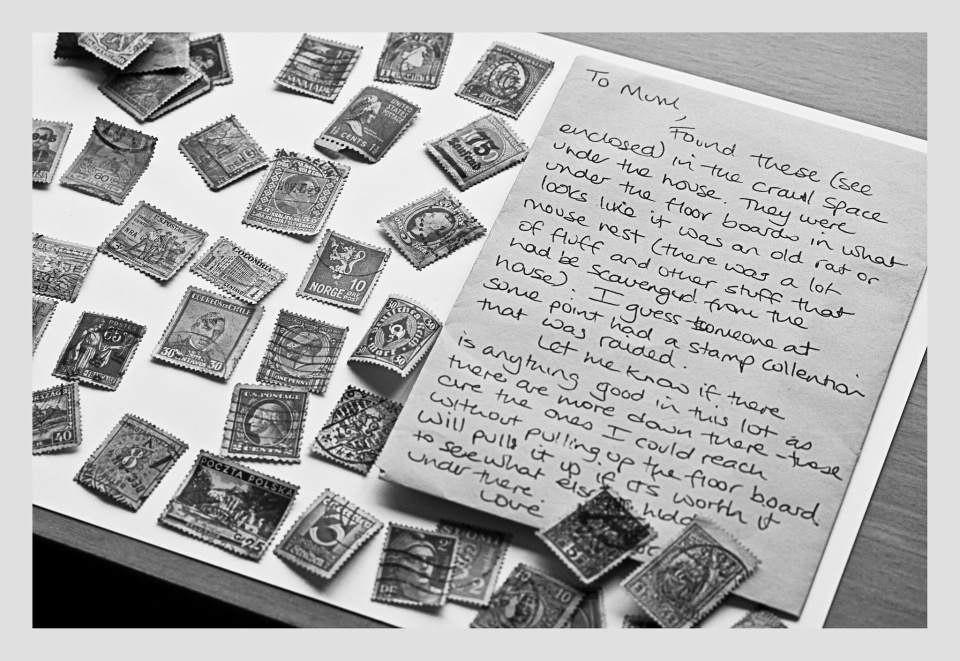 To Mum,
Found these (see
enclosed) in the crawl space
under the house. They were
under the floor boards in what
looks like it was an old rat or
mouse nest (there was a lot
of fluff and other stuff that
had be scavenged from the
house). I guess someone at
some point had a stamp collection
that was raided.
Let me know if there
is anything good in this lot as
there are more down there - these
are the ones I could reach
without pulling up the floor board
will pull it up if it's worth it
to see what else is hiding
under there.
Love
DANMARK
UNITED STATES
POSTAGE
1½ CENTS 1½
175
60
COLOMBIA
NORGE
10
ØRE
POST
CORREOS DE CHILE
30
30
POSTES
65
ONE PENNY
30
30
U.S. POSTAGE
CENTS
40
8
POCZTA POLSKA
25
6
2
DE
2
10